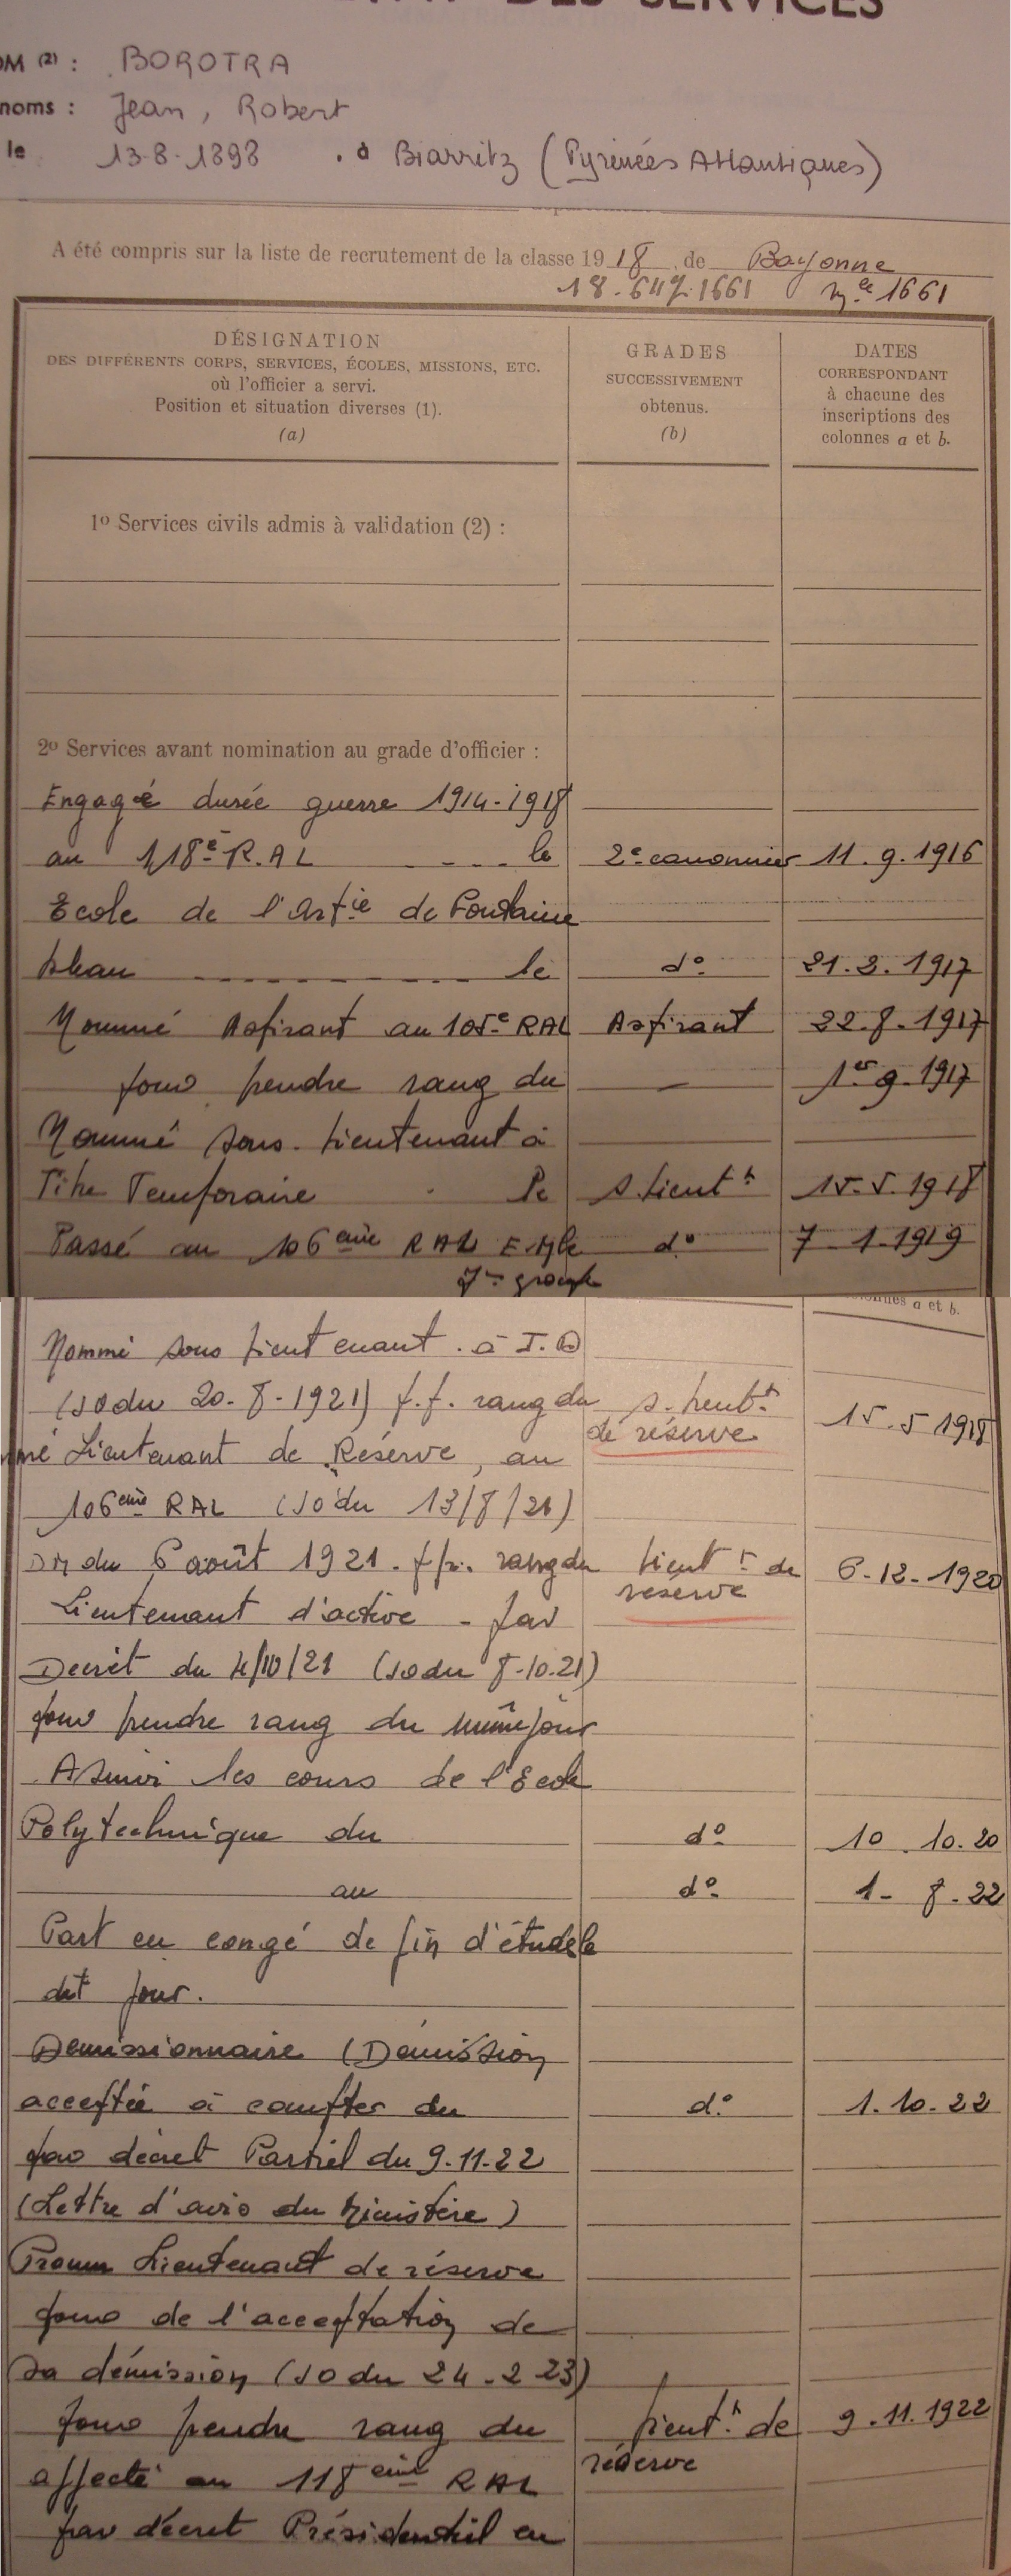 DES SERVICES
OM (2) : BOROTRA
noms : Jean, Robert
le 13-8-1898 à Biarritz (Pyrénées Atlantiques)
A été compris sur la liste de recrutement de la classe 1918 de Bayonne
18-647-1661 Mle 1661
DÉSIGNATION
DES DIFFÉRENTS CORPS, SERVICES, ÉCOLES, MISSIONS, ETC.
où l'officier a servi.
Position et situation diverses (1).
(a)
GRADES
SUCCESSIVEMENT
obtenus.
(b)
DATES
CORRESPONDANT
à chacune des
inscriptions des
colonnes a et b.
1º Services civils admis à validation (2) :
2º Services avant nomination au grade d'officier :
Engagé durée guerre 1914-1918
au 118e R.AL ---- le 2e canonnier 11.9.1916
Ecole de l'Artie de Fontaine
bleau -------- le dº 21.2.1917
Nommé Aspirant au 105e RAL Aspirant 22.8.1917
pour prendre rang du — 1er 9.1917
Nommé sous-Lieutenant à
Titre Temporaire le S.Lieutt 15.5.1918
Passé au 106ème RAL dº 7-1-1919
colonnes a et b.
Nommé sous Lieutenant à T.D
(JO du 20-8-1921) p.p. rang du s.Lieutt 15-5 1918
de réserve
mmé Lieutenant de Réserve, au
106ème RAL (JO du 13/8/21)
DM du 6 août 1921. p.pr. rang du Lieutt de 6-12-1920
réserve
Lieutenant d'active - par
Décret du 4/10/21 (JO du 8-10-21)
pour prendre rang du même jour
A suivi les cours de l'Ecole
Polytechnique du dº 10.10.20
au dº 1-8-22
Part en congé de fin d'étude le
dit jour.
Démissionnaire (Démission
acceptée à compter du dº 1.10.22
par décret Partiel du 9-11-22
(Lettre d'avis du Ministère)
Promu Lieutenant de réserve
pour de l'acceptation de
sa démission (JO du 24-2 23)
pour prendre rang du Lieutt de 9.11.1922
réserve
affecté au 118ème RAL
par décret Présidentiel en